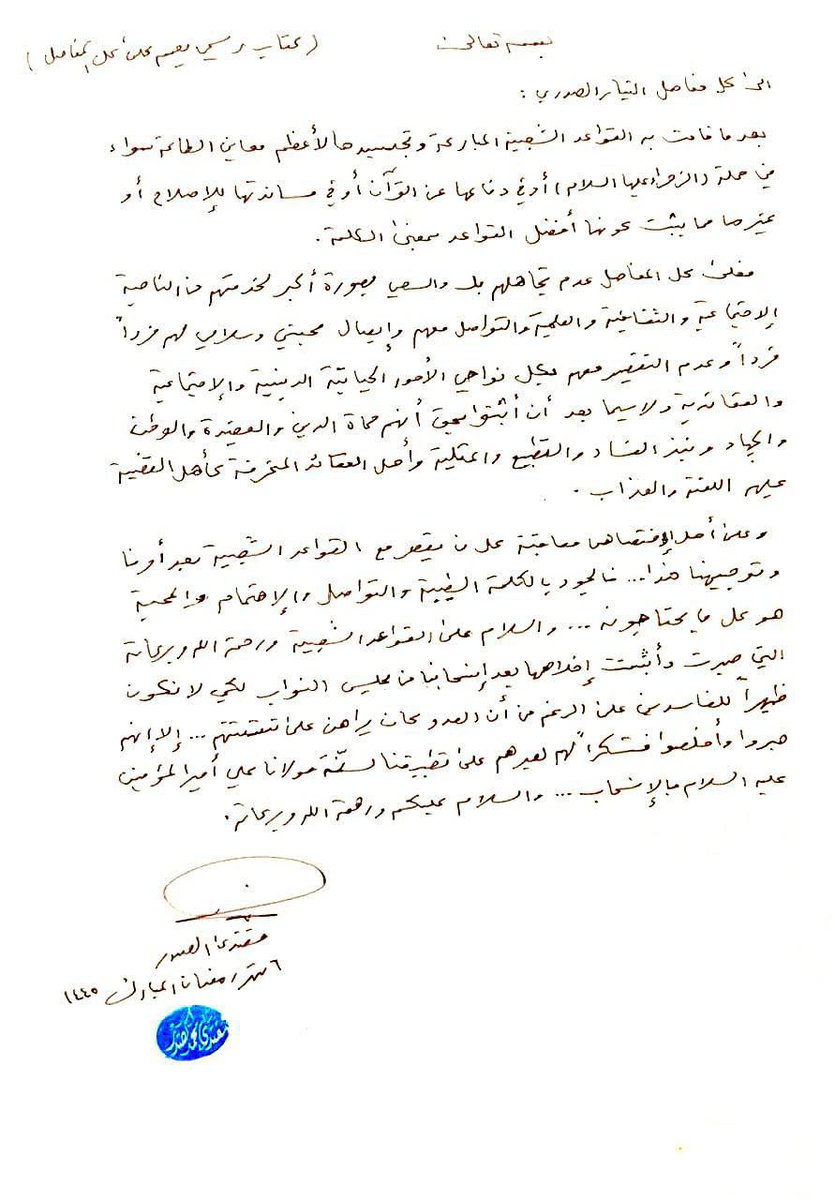 بسمه تعالى
(كتاب رسمي يعمم على كل المفاصل)
الى كل مفاصل التيار الصدري :
بعد ما قامت به القواعد الشعبية المباركة وتجسيدها لأعظم معاني الطاعة سواء
في حملة (الزهراء عليها السلام) أو في دفاعها عن القرآن أو في مساندتها للإصلاح أو
غيرها مما يثبت كونها أفضل القواعد بمعنى الكلمة .
فعلى كل المفاصل عدم تجاهلهم بل والسعي بصورة أكبر لخدمتهم من الناحية
الاجتماعية والثقافية والعلمية والتواصل معهم وإيصال محبتي وسلامي لهم فرداً
فرداً وعدم التقصير معهم بكل نواحي الأمور الحياتية الدينية والإجتماعية
والعقائدية ولاسيما بعد أن أثبتوا بحق أنهم حماة الدين والعقيدة والوطن
والجهاد ونبذ الفساد والتطبيع والمثلية وأهل العقائد المنحرفة كأهل القضية
عليهم اللعنة والعذاب .
وعلى أهل الإختصاص معاقبة كل من يقصر مع القواعد الشعبية بعد أمرنا
وتوجيهنا هذا... فالجود بالكلمة الطيبة والتواصل والإهتمام والمحبة
هو كل ما يحتاجونه ... والسلام على القواعد الشعبية ورحمة الله وبركاته
التي صبرت وأثبتت إخلاصها بعد إنسحابنا من مجلس النواب لكي لا نكون
ظهيراً للفاسدين على الرغم من أن العدو كان يراهن على تشتتهم ... إلا إنهم
صبروا وأخلصوا فشكراً لهم لصبرهم على تطبيقنا لسنّة مولانا علي أمير المؤمنين
عليه السلام بالإنسحاب ... والسلام عليكم ورحمة الله وبركاته .
مقتدى الصدر
٦ شهر رمضان المبارك ١٤٤٥